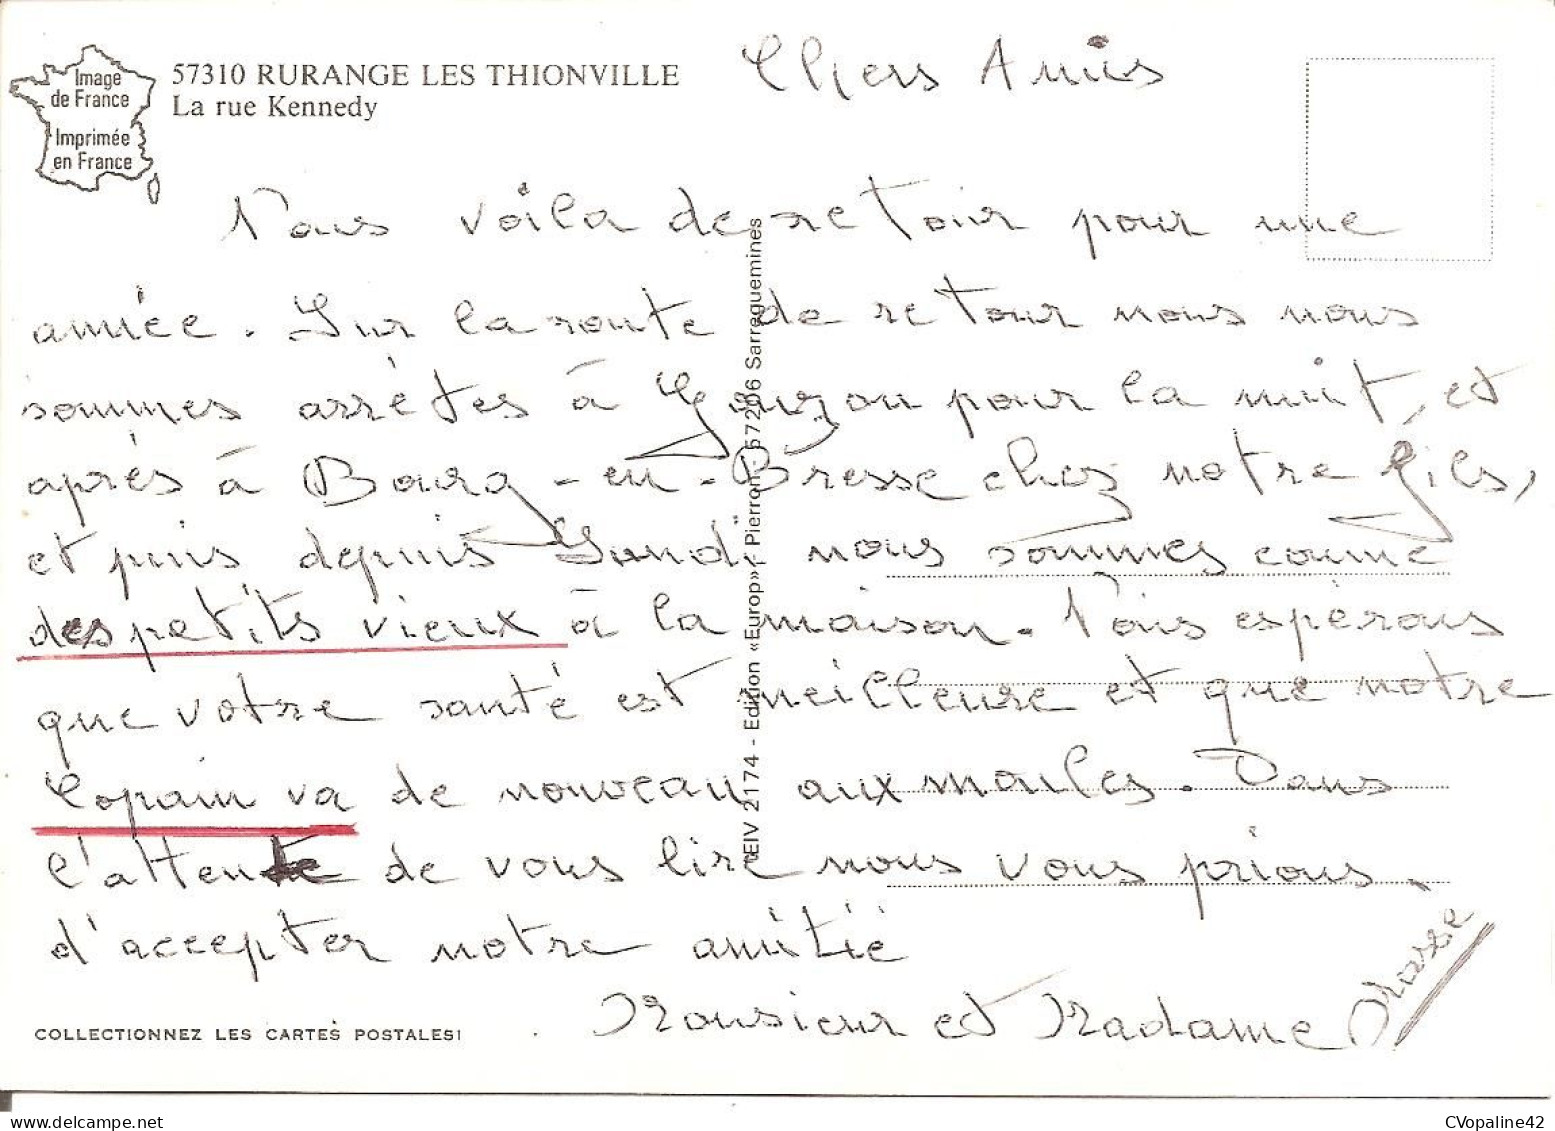 Image
de France
Imprimée
en France
57310 RURANGE LES THIONVILLE
La rue Kennedy
Chers Amis
Nous voila de retour pour une
année. Sur la route de retour nous nous
sommes arrêtes à Gouzon pour la nuit, et
après à Bourg-en-Bresse chez notre fils,
et puis depuis Lundi nous sommes comme
des petits vieux à la maison. Nous espérons
que votre santé est meilleure et que notre
Copain va de nouveau aux moules. Dans
l'attente de vous lire nous vous prions
d'accepter notre amitié
Monsieur et Madame
EIV 2174 - Edition «Europ» - Pierron - 57206 Sarreguemines
COLLECTIONNEZ LES CARTES POSTALES!
CVopaline42